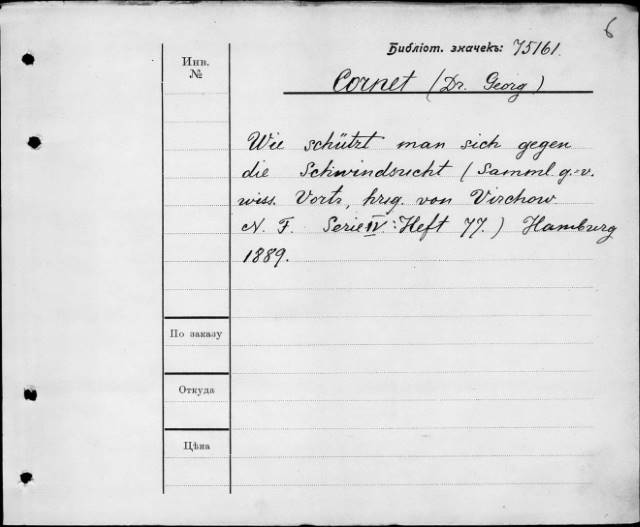 6
Библіот. значекъ: 75161.
Инв.
№
Cornet (Dr. Georg)
Wie schützt man sich gegen
die Schwindsucht (Samml. g.-v.
wiss. Vortr., hrsg. von Virchow
N. F. Serie IV: Heft 77.) Hamburg
1889.
По заказу
Откуда
Цѣна